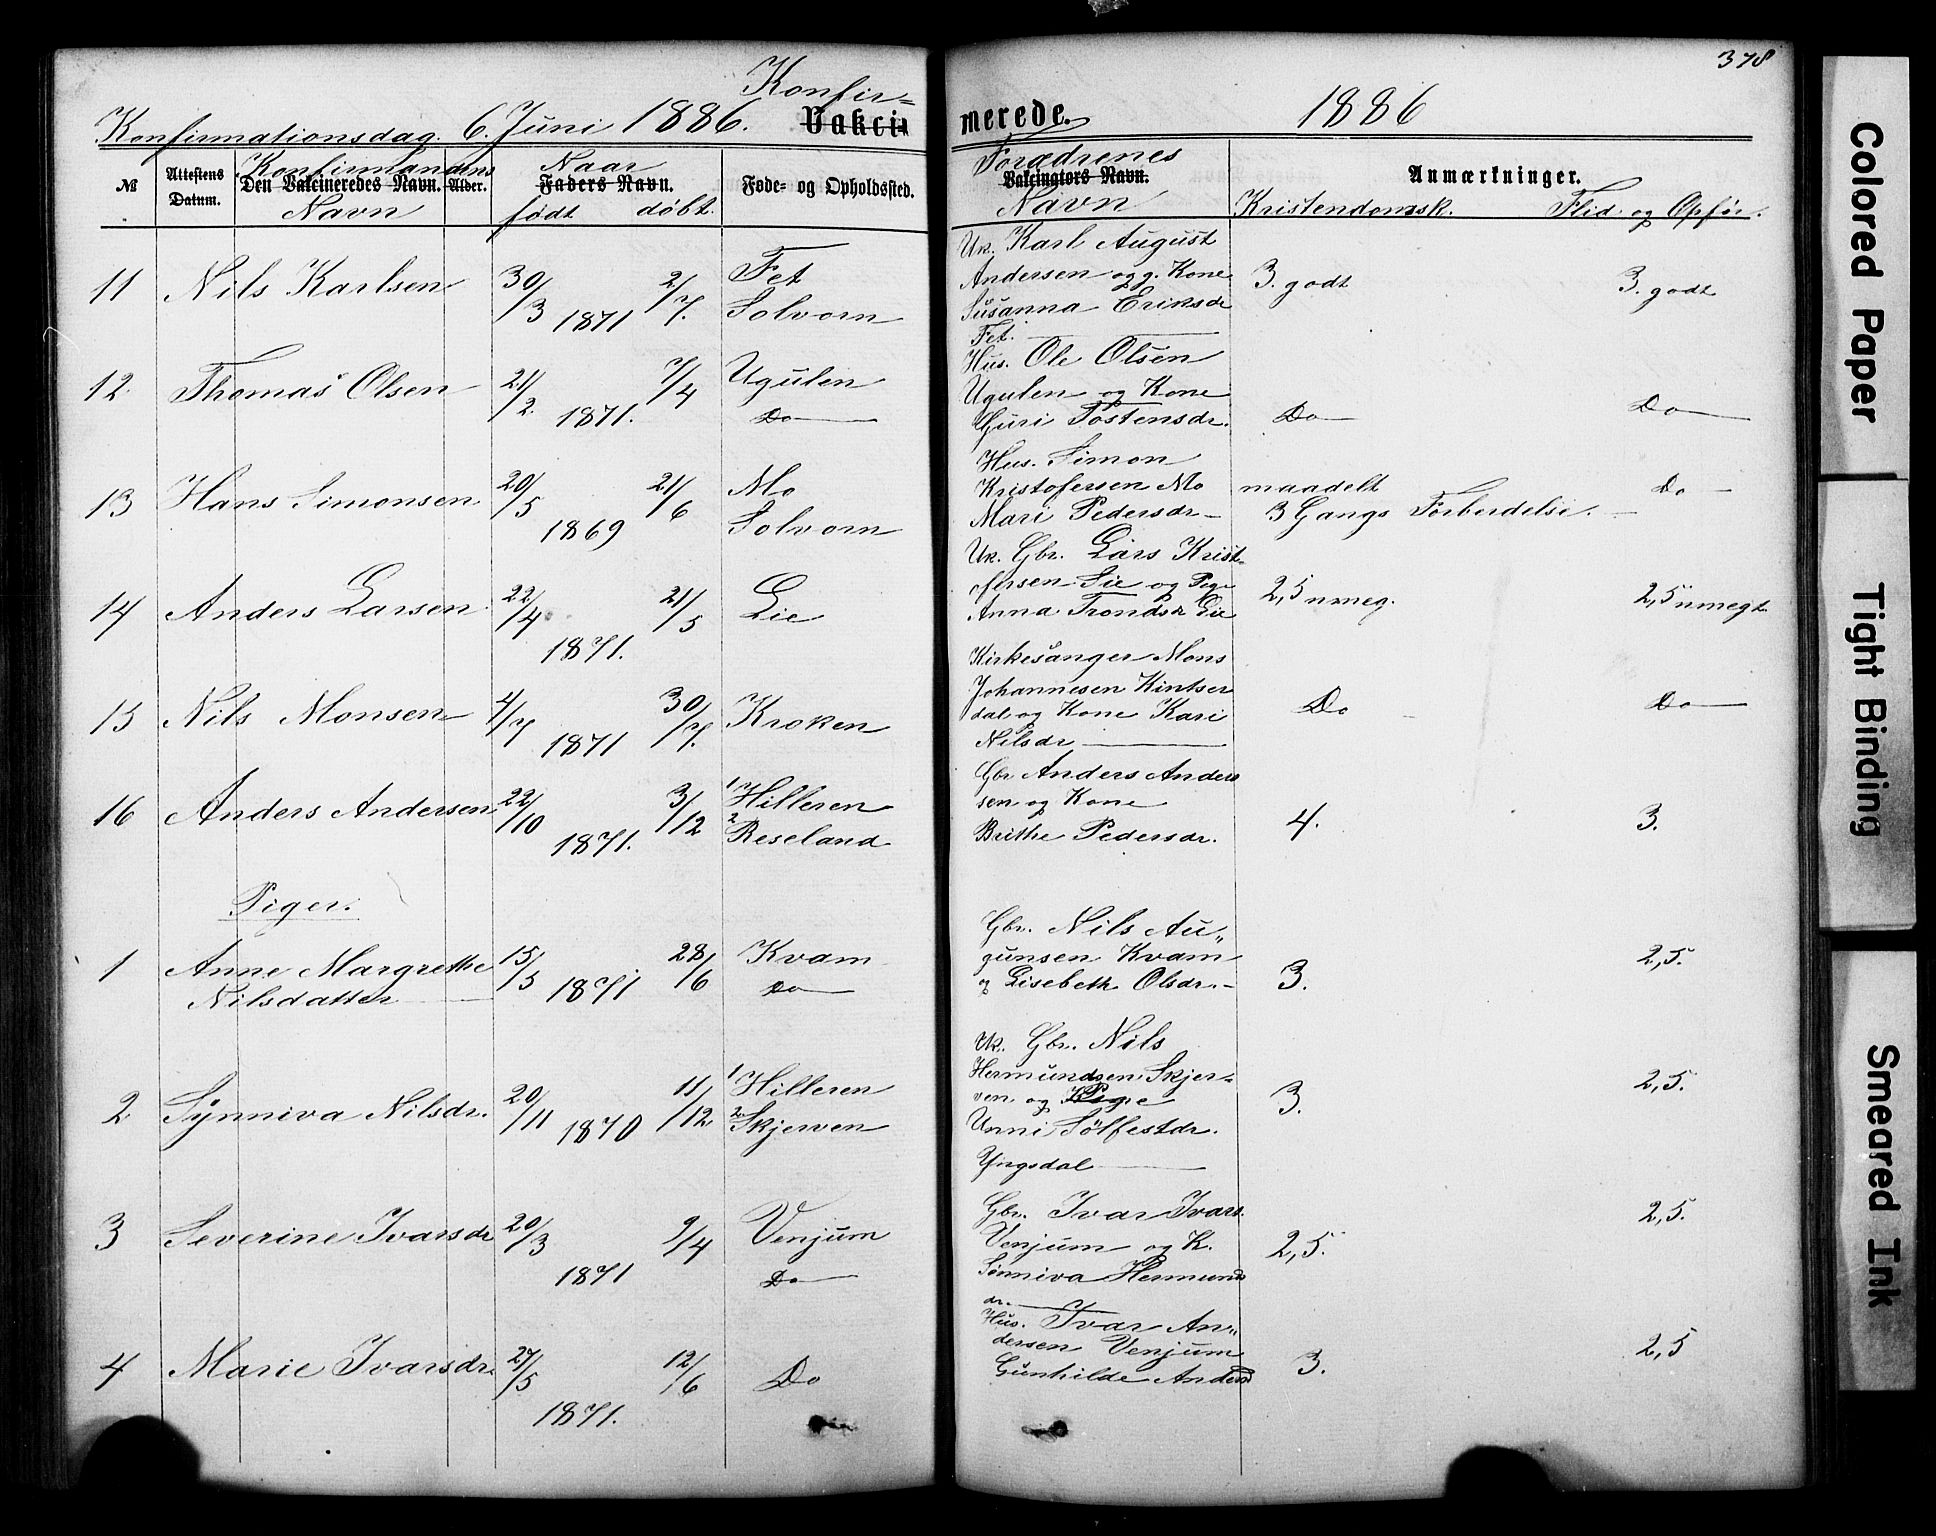 378
Konfir=
Konfirmationsdag. 6. Juni 1886. Vakci
merede. 1886
№ Attestens Datum. Konfirmandens Den Vakcineredes Navn. Navn Alder. Naar Faders Navn. født døbt. Føde- og Opholdssted.
Forældrenes Vakcinators Navn. Navn Anmærkninger. Kristendomsk. Flid og Opfør.
11 Nils Karlsen 30/3 1871 2/7. Fet Solvorn
Uk. Karl August
Andersen og g. Kone 3. godt 3. godt
Susanna Eriksdr
Fet.
12. Thomas Olsen 21/2. 1871. 7/4 Ugulen Do
Hus. Ole Olsen
Ugulen og Kone
Guri Tostensdr. Do Do
13 Hans Simonsen 20/5 1869 21/6 Mo Solvorn
Hus. Simon
Kristofersen Mo maadelt Do
Mari Pedersdr 3 Gangs Forberdelse.
14 Anders Larsen 22/4 1871. 21/5 Lie
Uk. Gbr. Lars Krist-
ofersen Lie og Pige 2,5 nmeg. 2,5 nmegt
Anna Trondsdr Lie
15 Nils Monsen 4/7 1871 30/7. Kroken
Kirkesanger Mons
Johannesen Kintser
dal og Kone Kari Do Do
Nilsdr
16 Anders Andersen 22/10 1871. 3/12 1 Hilleren 2 Reseland
Gbr Anders Anders
sen og Kone
Brithe Pedersdr. 4. 3.
Piger.
1 Anne Margrethe Nilsdatter 15/5 1871 28/6 Kvam Do
Gbr. Nils Au"
gunsen Kvam 2,5.
og Lisebeth Olsdr. 3.
2 Synniva Nilsdr. 20/11 1870 11/12 1 Hilleren 2 Skjerven
Uk. Gbr. Nils
Hermundsen Skjer=
ven og Pige 3. 2,5.
Unni Sølfestdr.
Yngsdal
3 Severine Ivarsdr 20/3 1871 9/4 Venjum Do
Gbr. Ivar Ivars.
Venjum og K. 2,5. 2,5.
Sønniva Hermunds
dr.
4 Marie Ivarsdr. 27/5 1871. 12/6 Do
Hus. Ivar An"
dersen Venjum 2,5
Gunhilde Andersd 3.
Colored Paper
Tight Binding
Smeared Ink